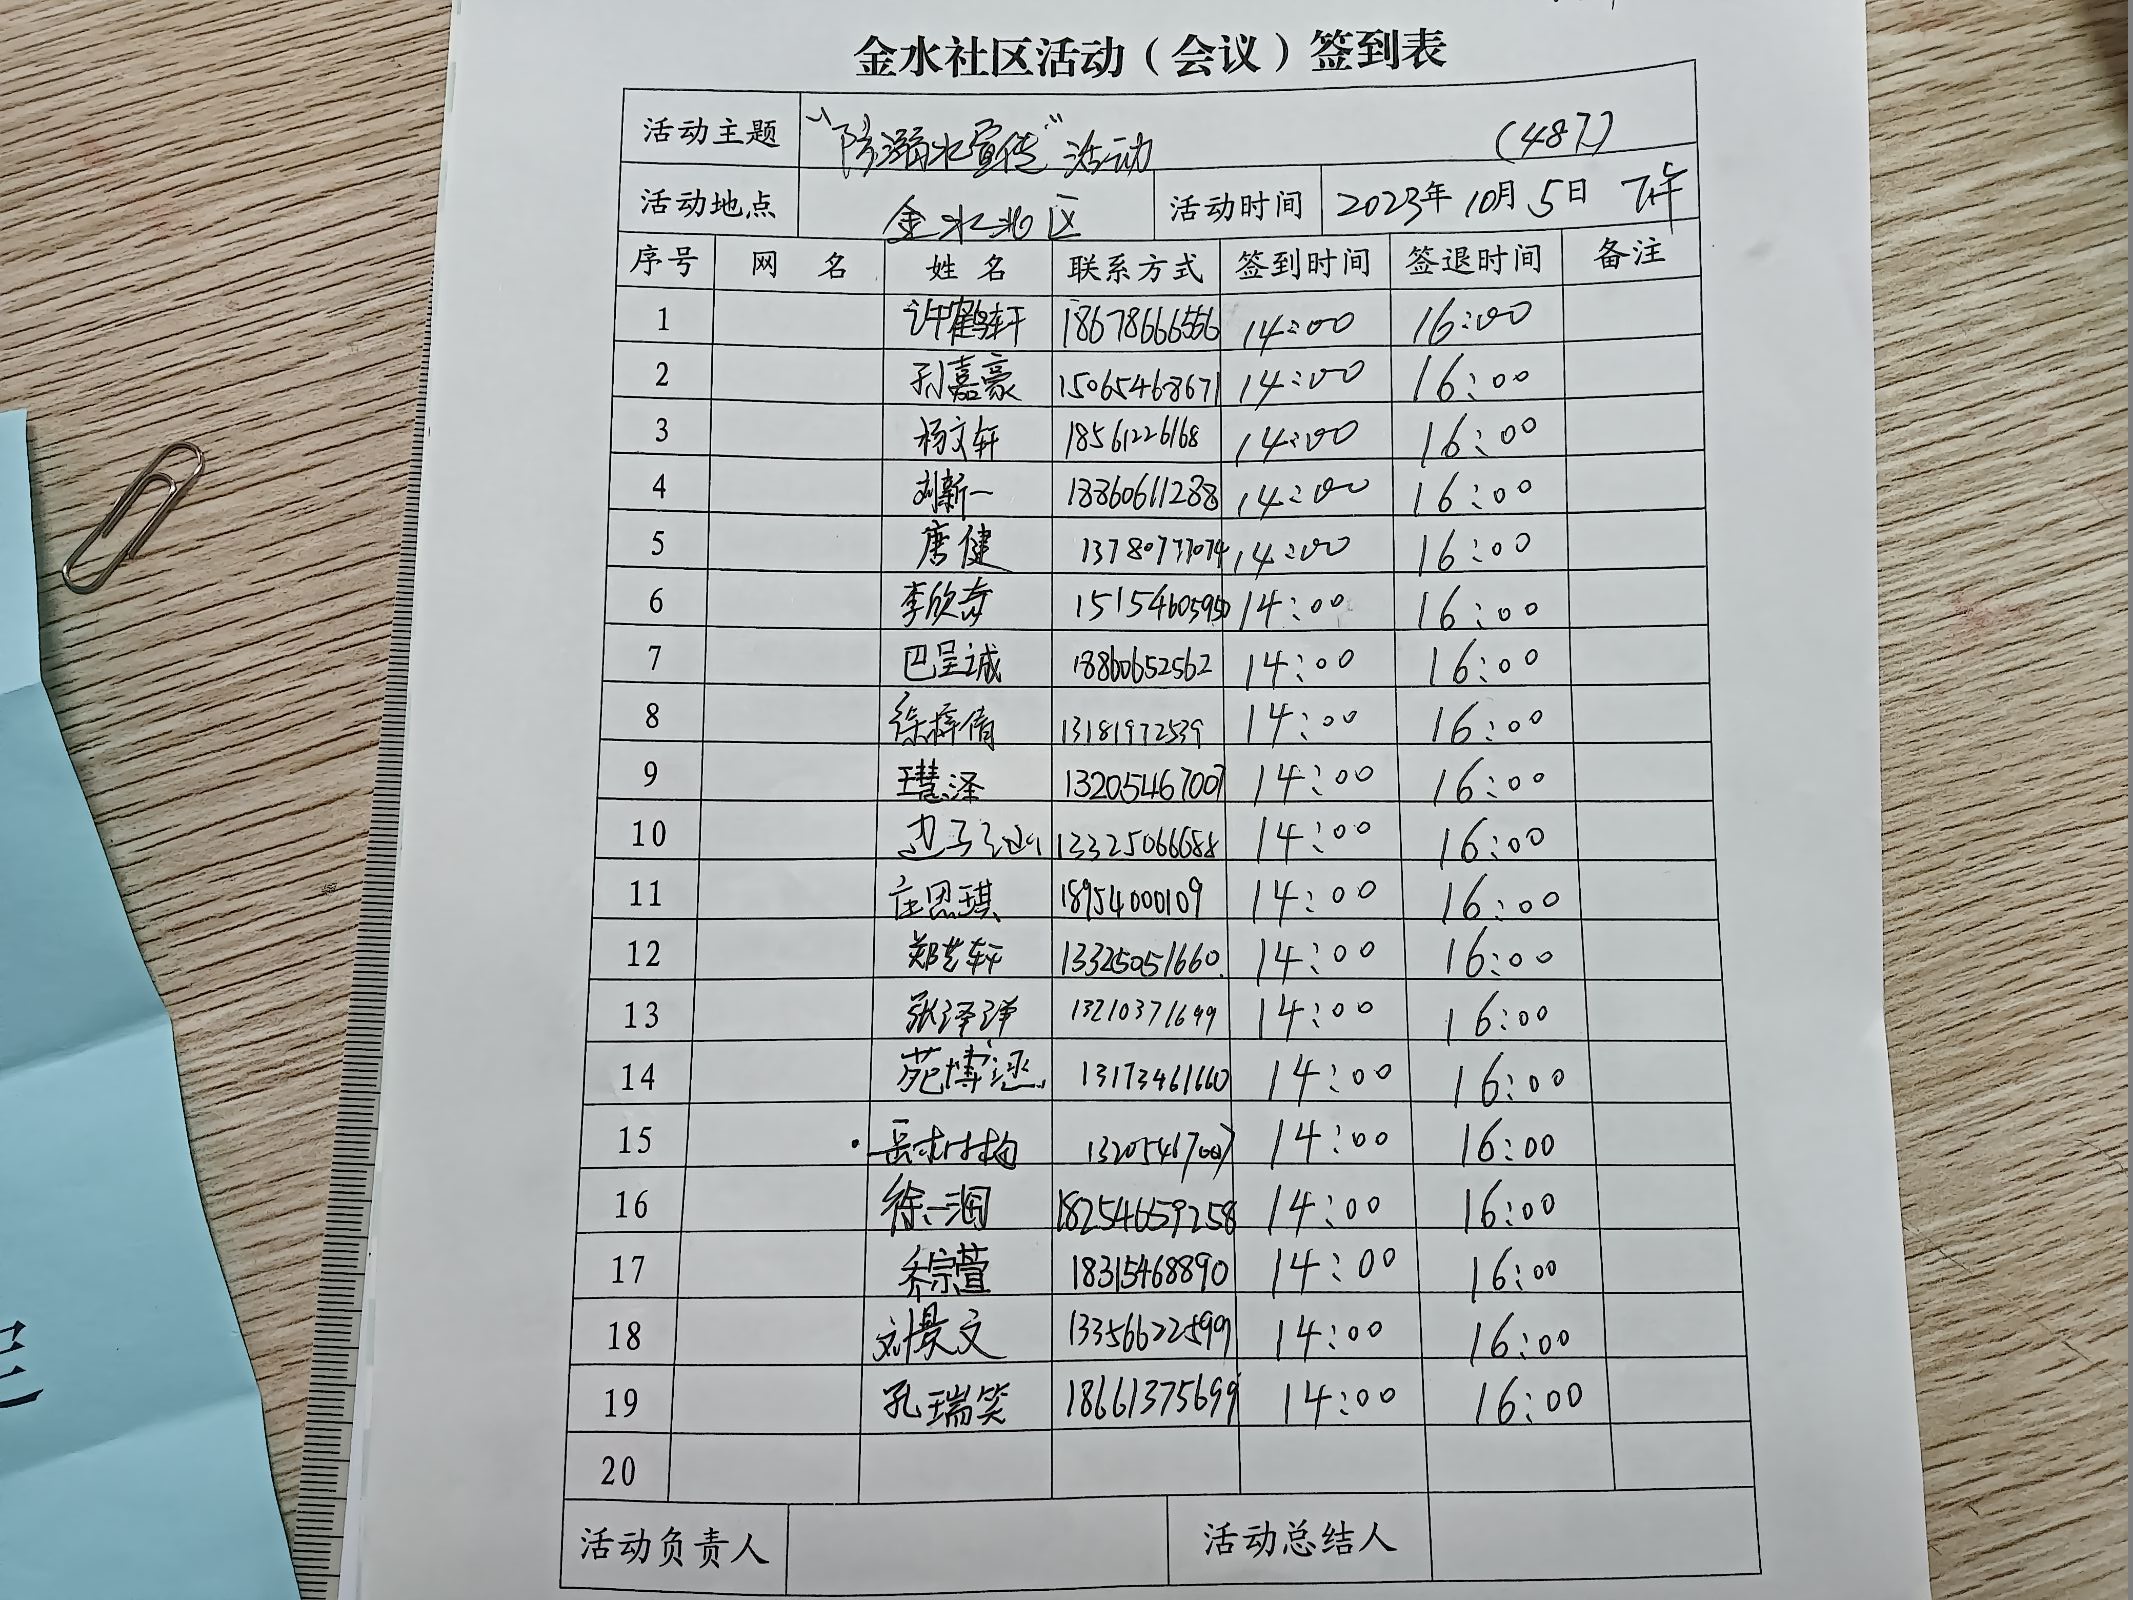 金水社区活动（会议）签到表
活动主题 “防溺水宣传”活动 （487）
活动地点 金水北区 活动时间 2023年10月5日 下午
序号 网名 姓名 联系方式 签到时间 签退时间 备注
1 许鹤轩 18678666556 14:00 16:00
2 孙嘉豪 15065468671 14:00 16:00
3 杨文轩 18561226168 14:00 16:00
4 刘新一 18860611288 14:00 16:00
5 唐健 13780777074 14:00 16:00
6 李欣 15154605950 14:00 16:00
7 巴呈诚 18860652562 14:00 16:00
8 徐梓倩 13181972539 14:00 16:00
9 王慧泽 13205467007 14:00 16:00
10 边 13325066688 14:00 16:00
11 庄恩琪 18954000109 14:00 16:00
12 郑艺轩 13325051660 14:00 16:00
13 张泽洋 13210371699 14:00 16:00
14 苑博涵 13173461660 14:00 16:00
15 岳 13205467007 14:00 16:00
16 徐一涧 18254659258 14:00 16:00
17 乔宗萱 18315468890 14:00 16:00
18 刘景文 13356622599 14:00 16:00
19 孔瑞笑 18661375699 14:00 16:00
20
活动负责人 活动总结人